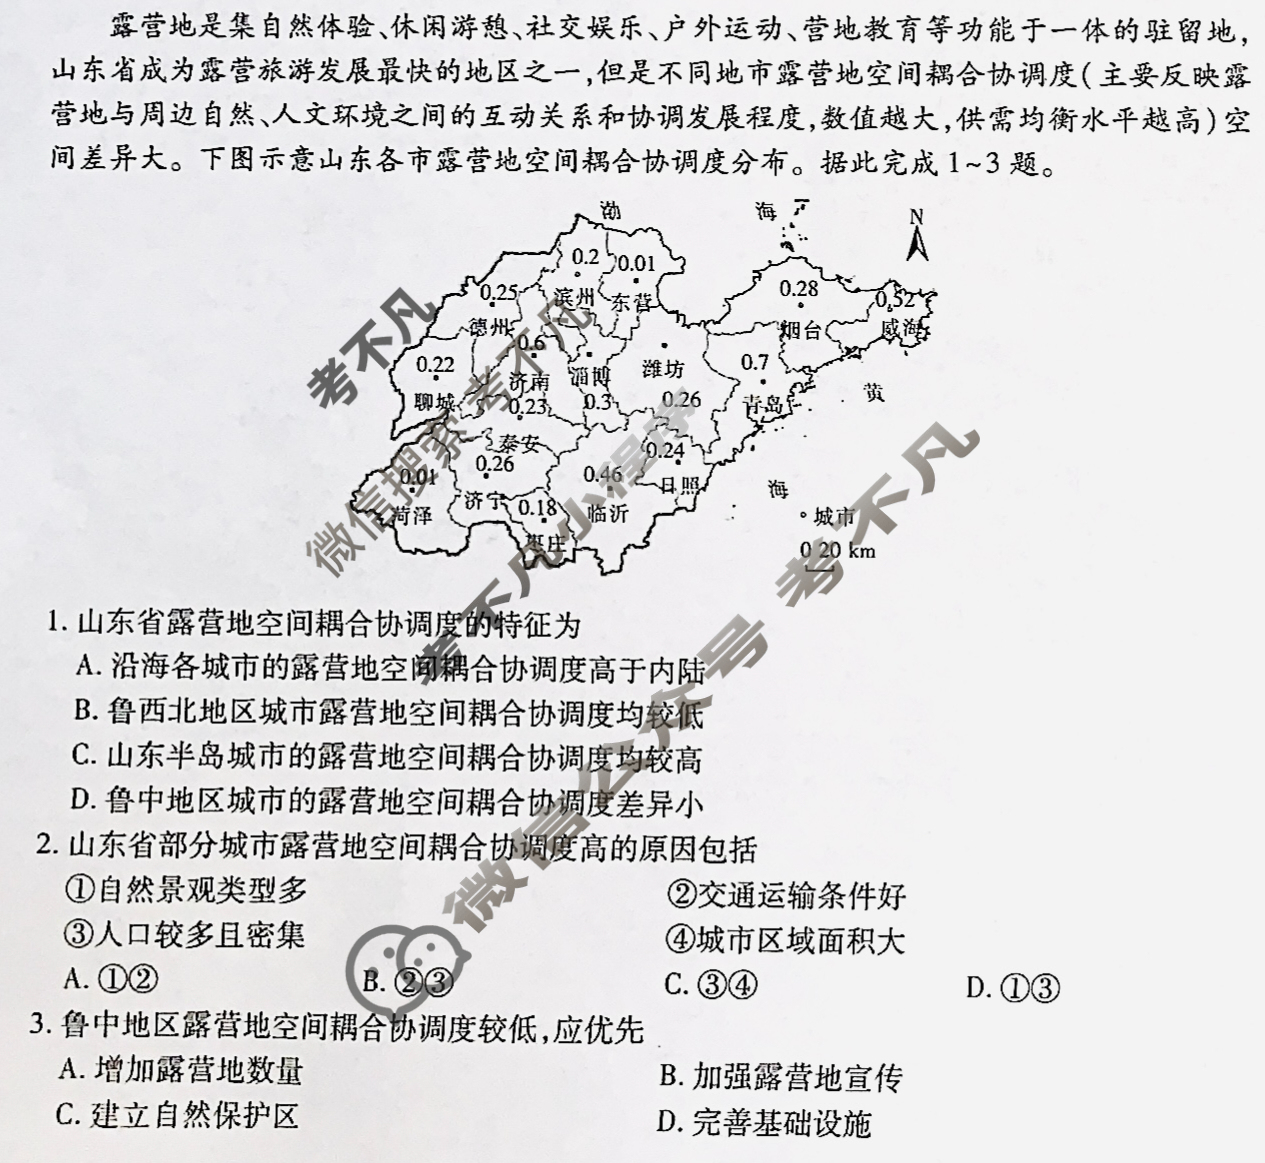 露营地是集自然体验、休闲游憩、社交娱乐、户外运动、营地教育等功能于一体的驻留地,
山东省成为露营旅游发展最快的地区之一,但是不同地市露营地空间耦合协调度(主要反映露
营地与周边自然、人文环境之间的互动关系和协调发展程度,数值越大,供需均衡水平越高)空
间差异大。下图示意山东各市露营地空间耦合协调度分布。据此完成1~3题。
渤 海 N
0.2 0.01
滨州 东营
0.25
德州
0.28
烟台
0.52
威海
0.6
济南
0.22
聊城
淄博
0.3
潍坊
0.26
0.7
青岛
黄
0.23
泰安
0.24
日照
0.01
菏泽
0.26
济宁
0.46
临沂
海
0.18
枣庄
城市
0 20 km
1. 山东省露营地空间耦合协调度的特征为
A. 沿海各城市的露营地空间耦合协调度高于内陆
B. 鲁西北地区城市露营地空间耦合协调度均较低
C. 山东半岛城市的露营地空间耦合协调度均较高
D. 鲁中地区城市的露营地空间耦合协调度差异小
2. 山东省部分城市露营地空间耦合协调度高的原因包括
①自然景观类型多 ②交通运输条件好
③人口较多且密集 ④城市区域面积大
A. ①② B. ②③ C. ③④ D. ①③
3. 鲁中地区露营地空间耦合协调度较低,应优先
A. 增加露营地数量 B. 加强露营地宣传
C. 建立自然保护区 D. 完善基础设施
考不凡
微信搜索 考不凡
考不凡小程序
微信公众号 考不凡